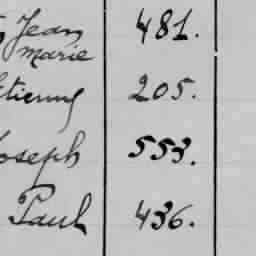 Jean 481.
marie
Etienne 205.
Joseph 553.
Paul 436.